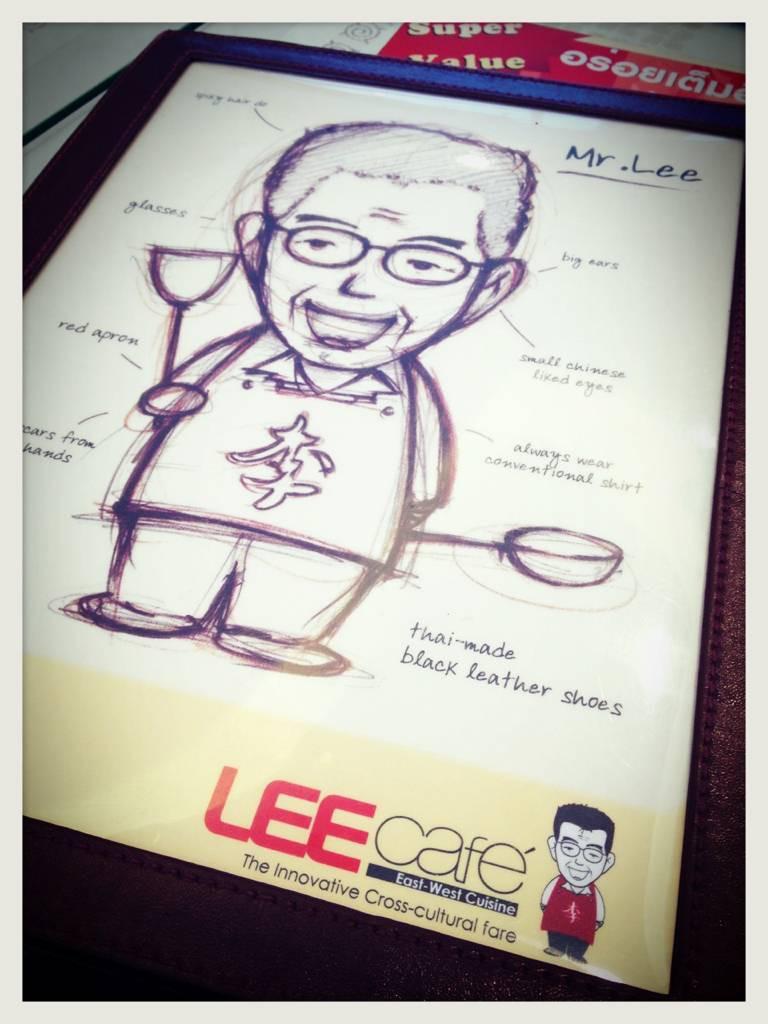 Super
Value
อร่อยเต็ม
Mr.Lee
spiky hair do
glasses
big ears
red apron
small chinese
liked eyes
from
hands
always wear
conventional shirt
李
thai-made
black leather shoes
LEE café
East-West Cuisine
The Innovative Cross-cultural fare
李